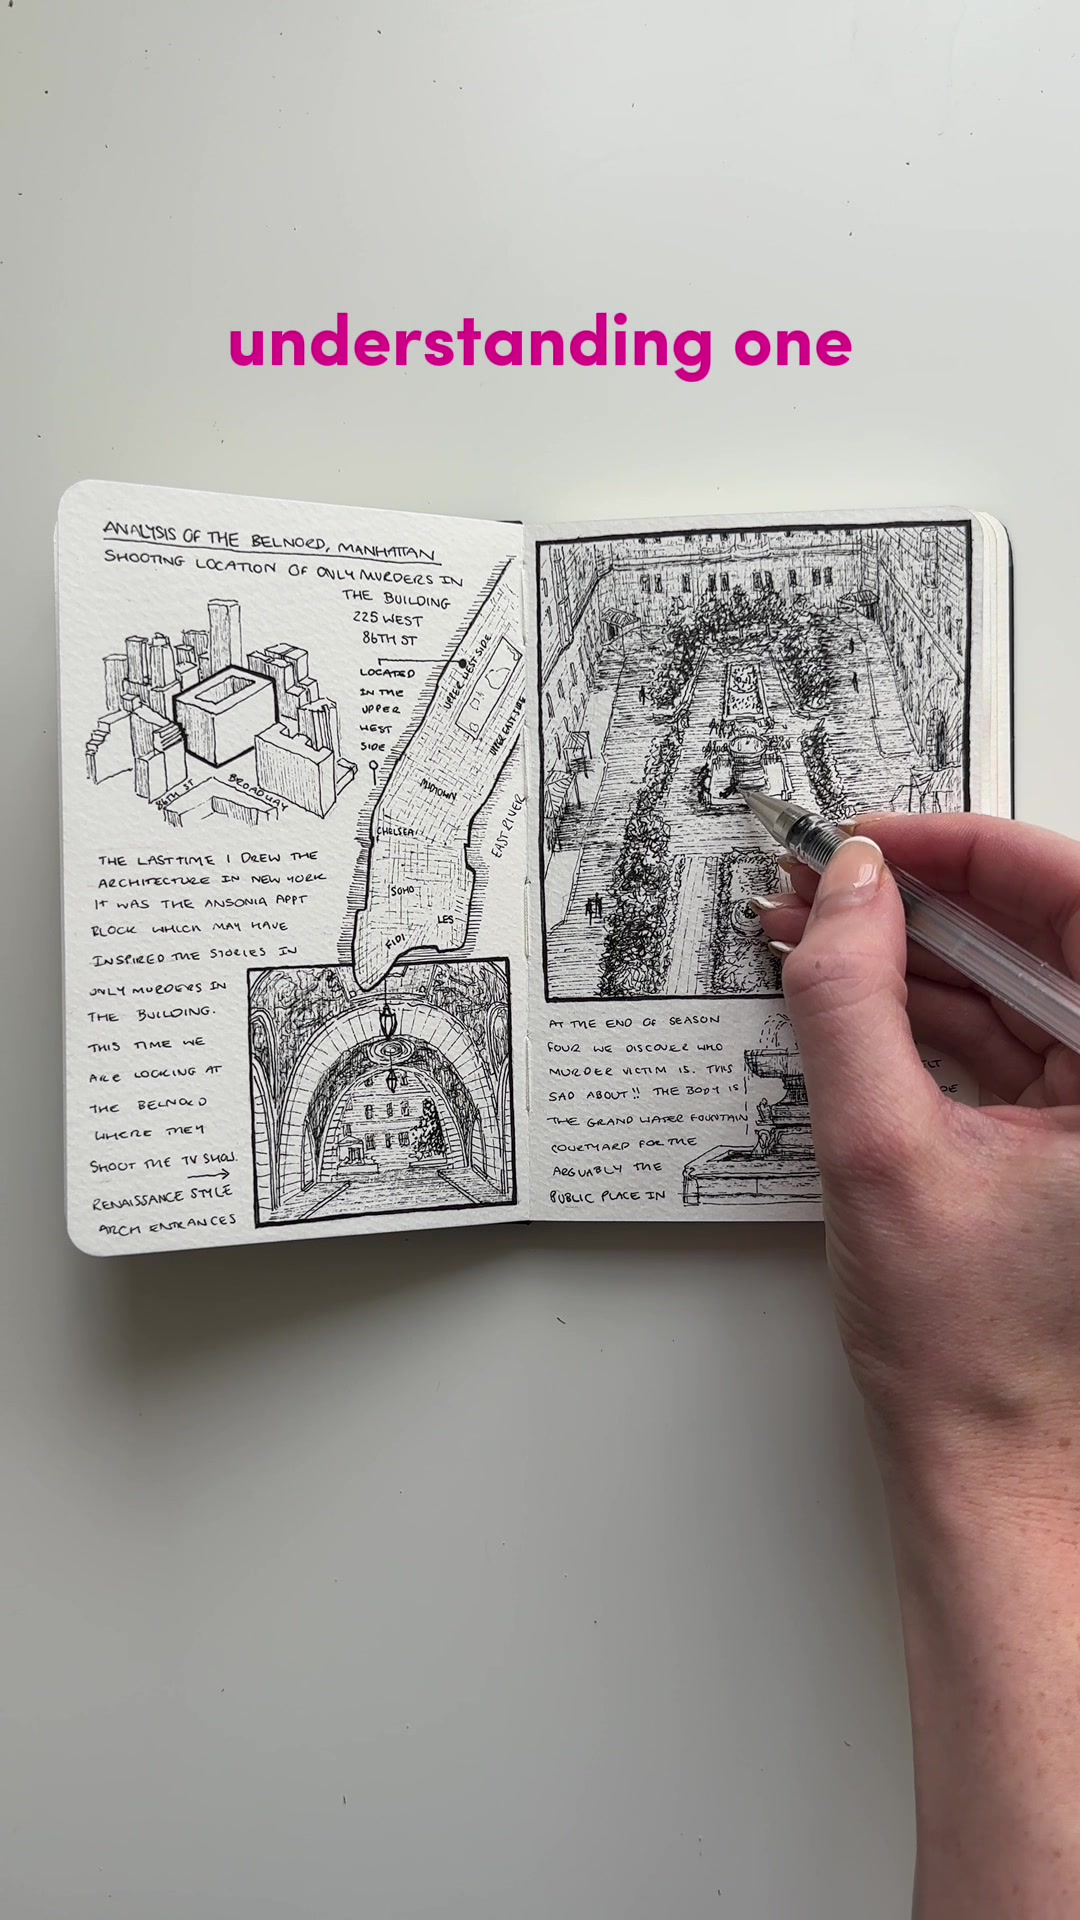 understanding one
ANALYSIS OF THE BELNORD, MANHATTAN
SHOOTING LOCATION OF ONLY MURDERS IN
THE BUILDING
225 WEST
86TH ST
LOCATED
IN THE
UPPER
WEST
SIDE
UPPER WEST SIDE
UPPER EAST SIDE
MIDTOWN
CHELSEA
EAST RIVER
SOHO
LES
FIDI
86TH ST
BROADWAY
THE LAST TIME I DREW THE
ARCHITECTURE IN NEW YORK
IT WAS THE ANSONIA APPT
BLOCK WHICH MAY HAVE
INSPIRED THE STORIES IN
ONLY MURDERS IN
THE BUILDING.
THIS TIME WE
ARE LOOKING AT
THE BELNORD
WHERE THEY
SHOOT THE TV SHOW.
RENAISSANCE STYLE
ARCH ENTRANCES
AT THE END OF SEASON
FOUR WE DISCOVER WHO
MURDER VICTIM IS. THIS
SAD ABOUT!! THE BODY IS
THE GRAND WATER FOUNTAIN
COURTYARD FOR THE
ARGUABLY THE
PUBLIC PLACE IN